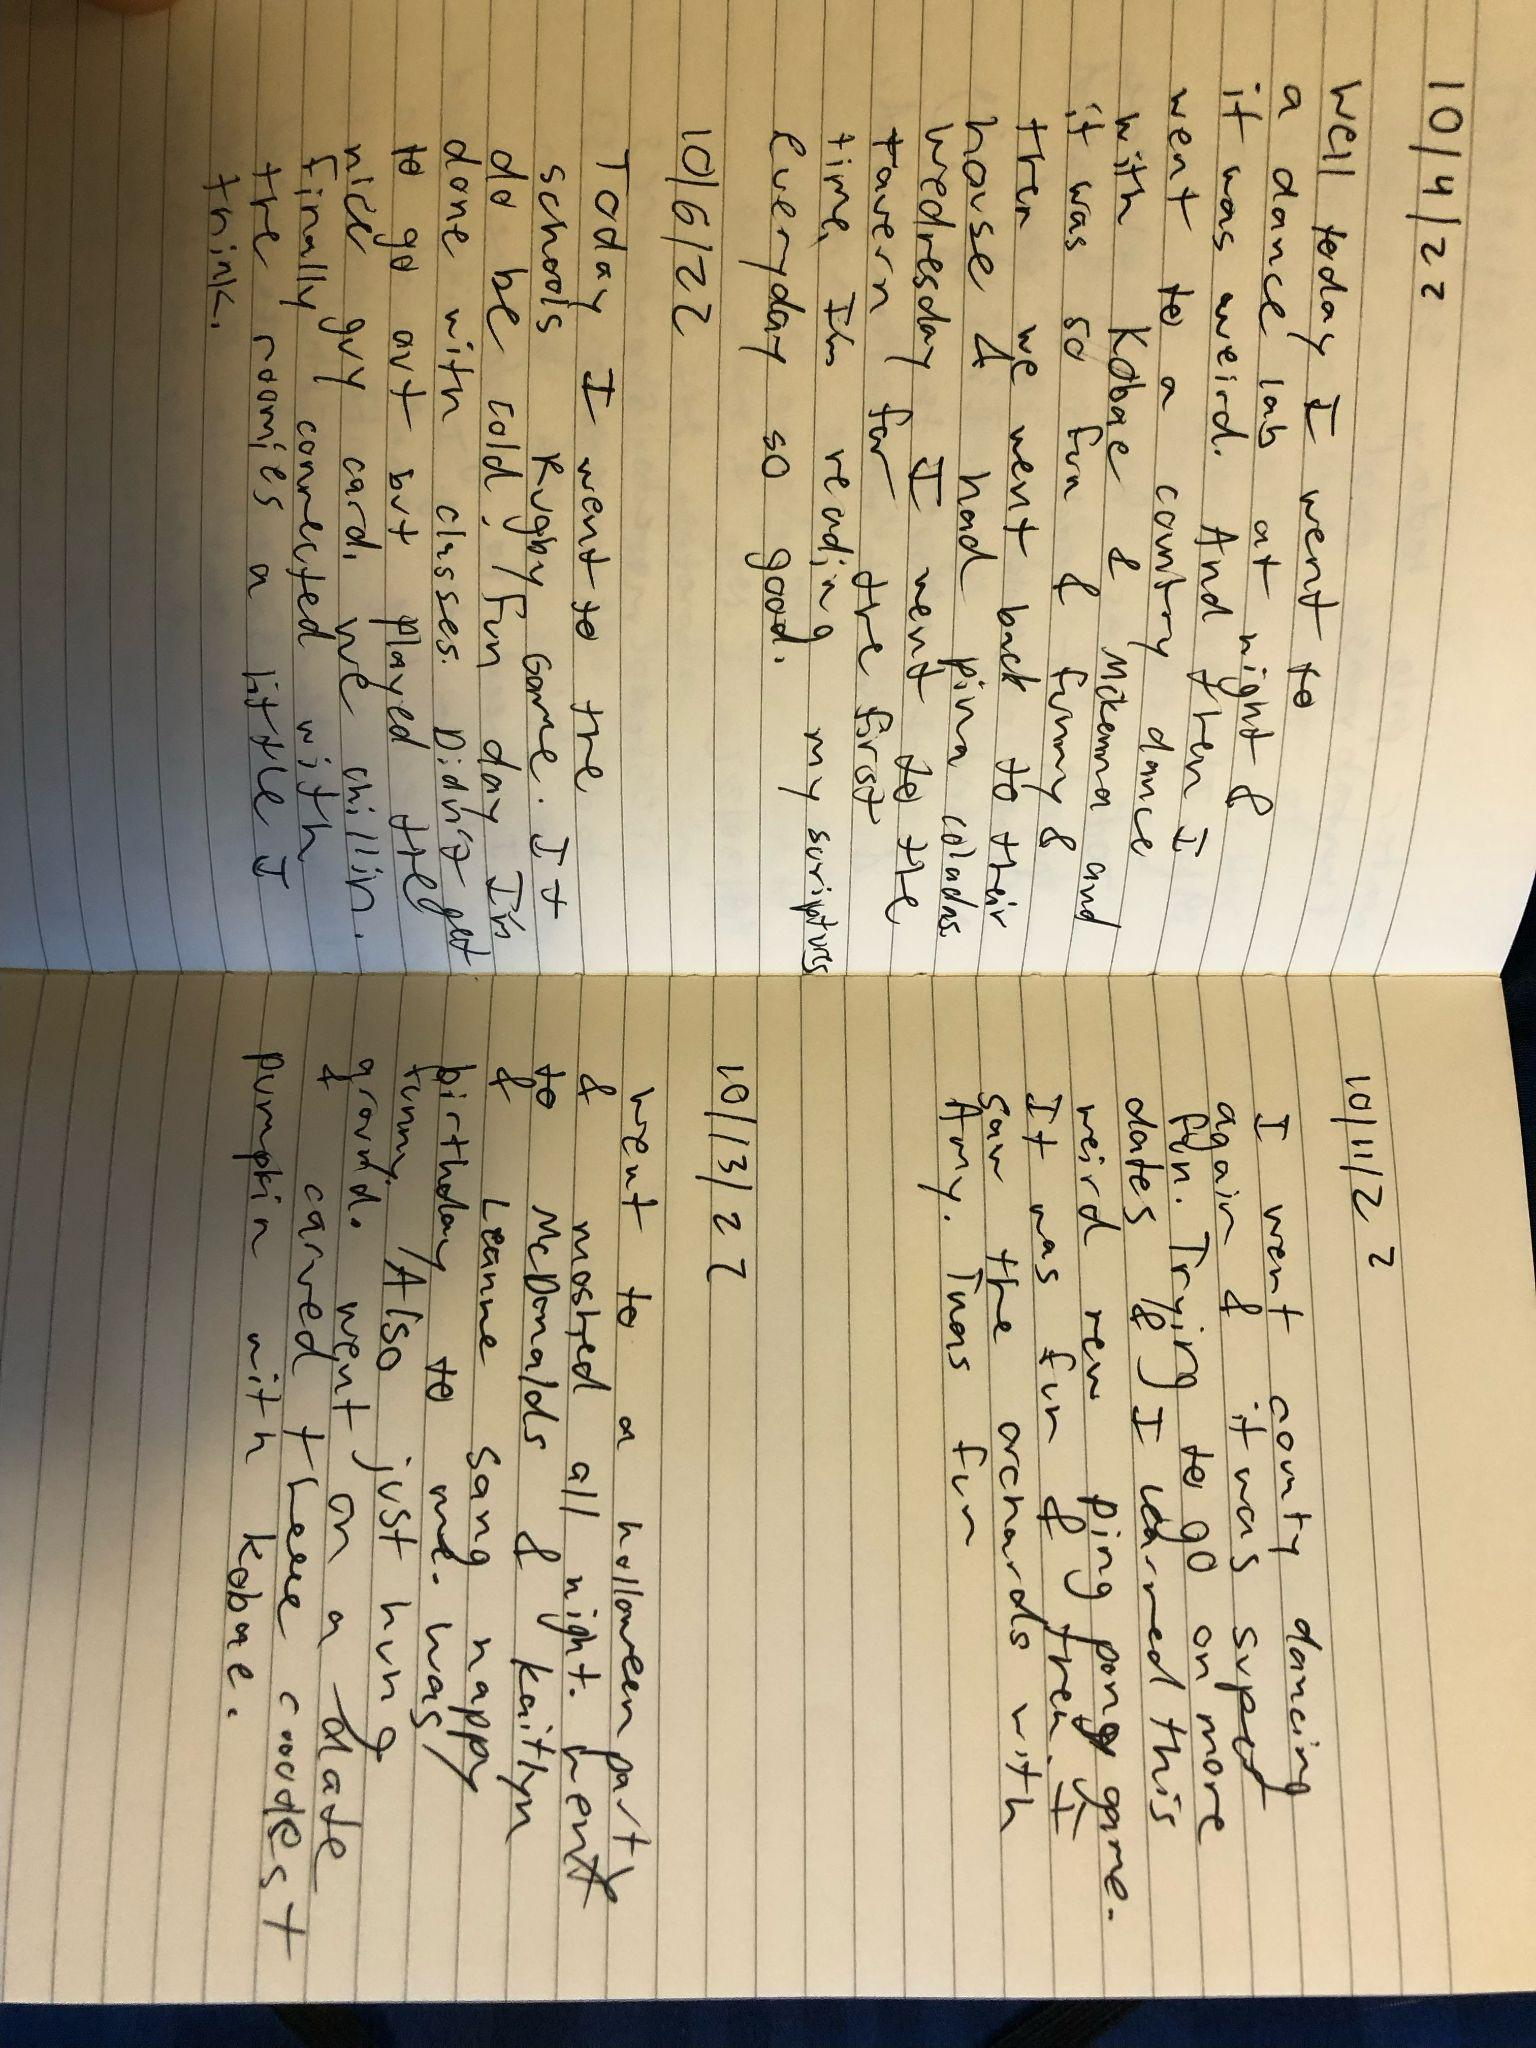 10/4/22
Well today I went to
a dance lab at night &
it was weird. And then I
went to a country dance
with Kobae & Mckenna and
it was so fun & funny &
then we went back to their
house & had pina coladas.
Wedresday I went to the
tavern for the first
time, I'm reading my scriptures
everyday so good.
10/6/22
Today I went to the
schools Rugby Game. It
do be cold, fun day I'm
done with classes. Didn't get
to go out but played the
nice guy card. we chillin.
finally connected with
the roomies a little I
think.
10/11/22
I went county dancing
again & it was super
fun. Trying to go on more
dates & I learned this
weird new ping pong game.
It was fun & then I
saw the orchards with
Amy. Twas fun
10/13/22
Went to a holloween party
& moshed all night. went
to McDonalds & kaitlyn
& Leanne sang happy
birthday to me. was
funny. Also just hung
around. went on a date
& carved theee coolest
pumpkin with kobae.